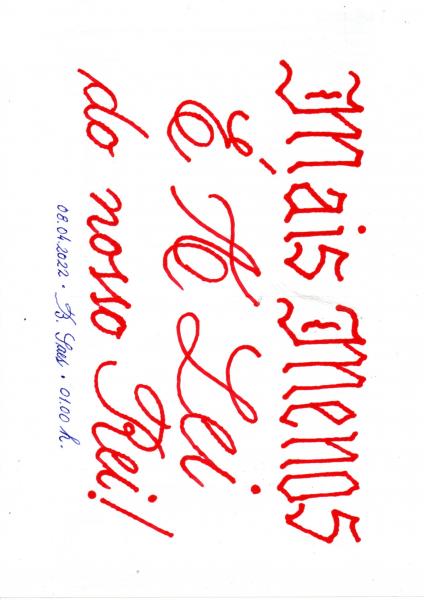 Mais Menos
É A Lei
do nosso Rei!
08.04.2022 • B. • 01.00 h.